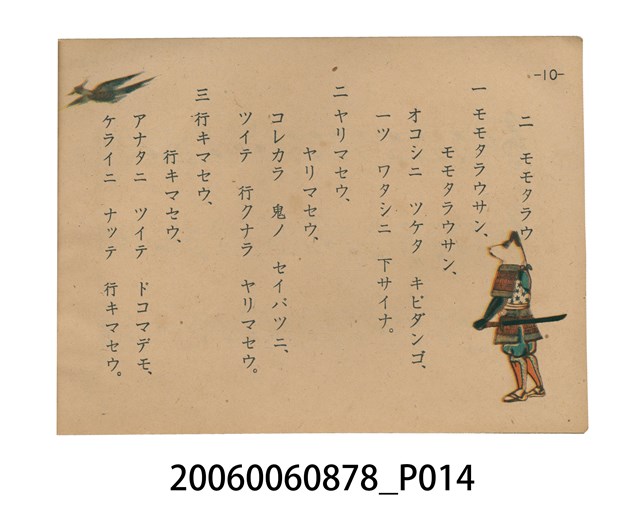 -10-
二 モモタラウ
一 モモタラウサン、
モモタラウサン、
オコシニ ツケタ キビダンゴ、
一ツ ワタシニ 下サイナ。
二 ヤリマセウ、
ヤリマセウ、
コレカラ 鬼ノ セイバツニ、
ツイテ 行クナラ ヤリマセウ。
三 行キマセウ、
行キマセウ、
アナタニ ツイテ ドコマデモ、
ケライニ ナッテ 行キマセウ。
20060060878_P014